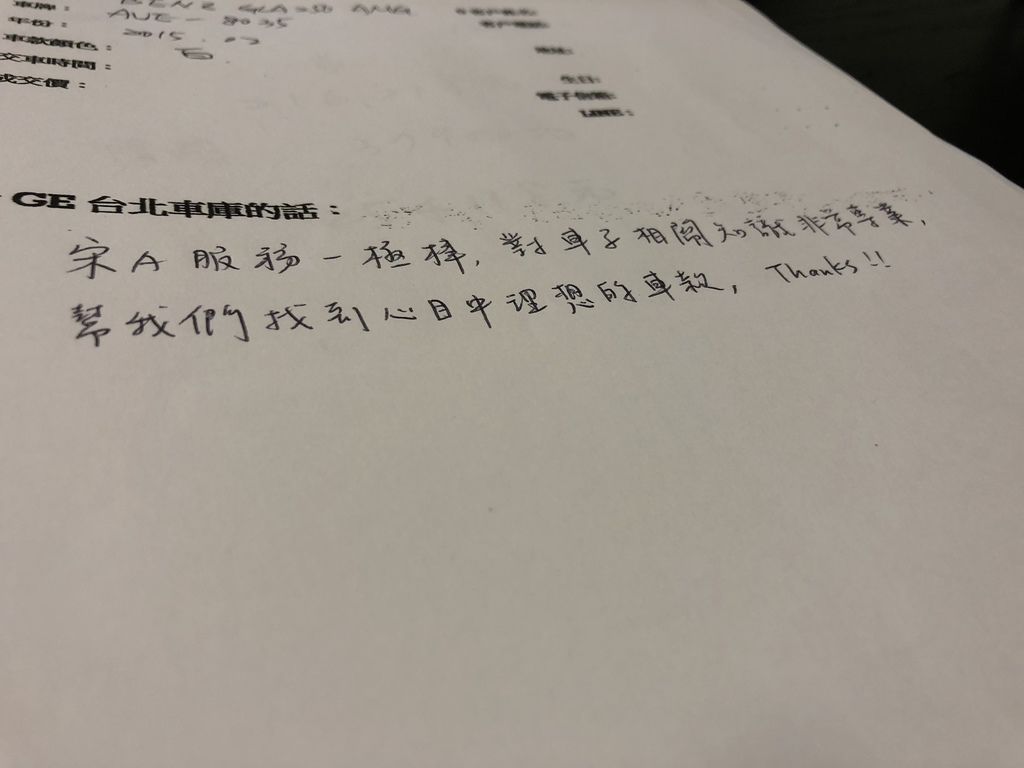 車牌： AUE-8035
年份： 2015.02
車款顏色： 白
交車時間：
成交價：
地址：
生日：
電子信箱：
LINE：
GE 台北車庫的話：
宋A服務一極棒, 對車子相關知識非常專業,
幫我們找到心目中理想的車款, Thanks!!